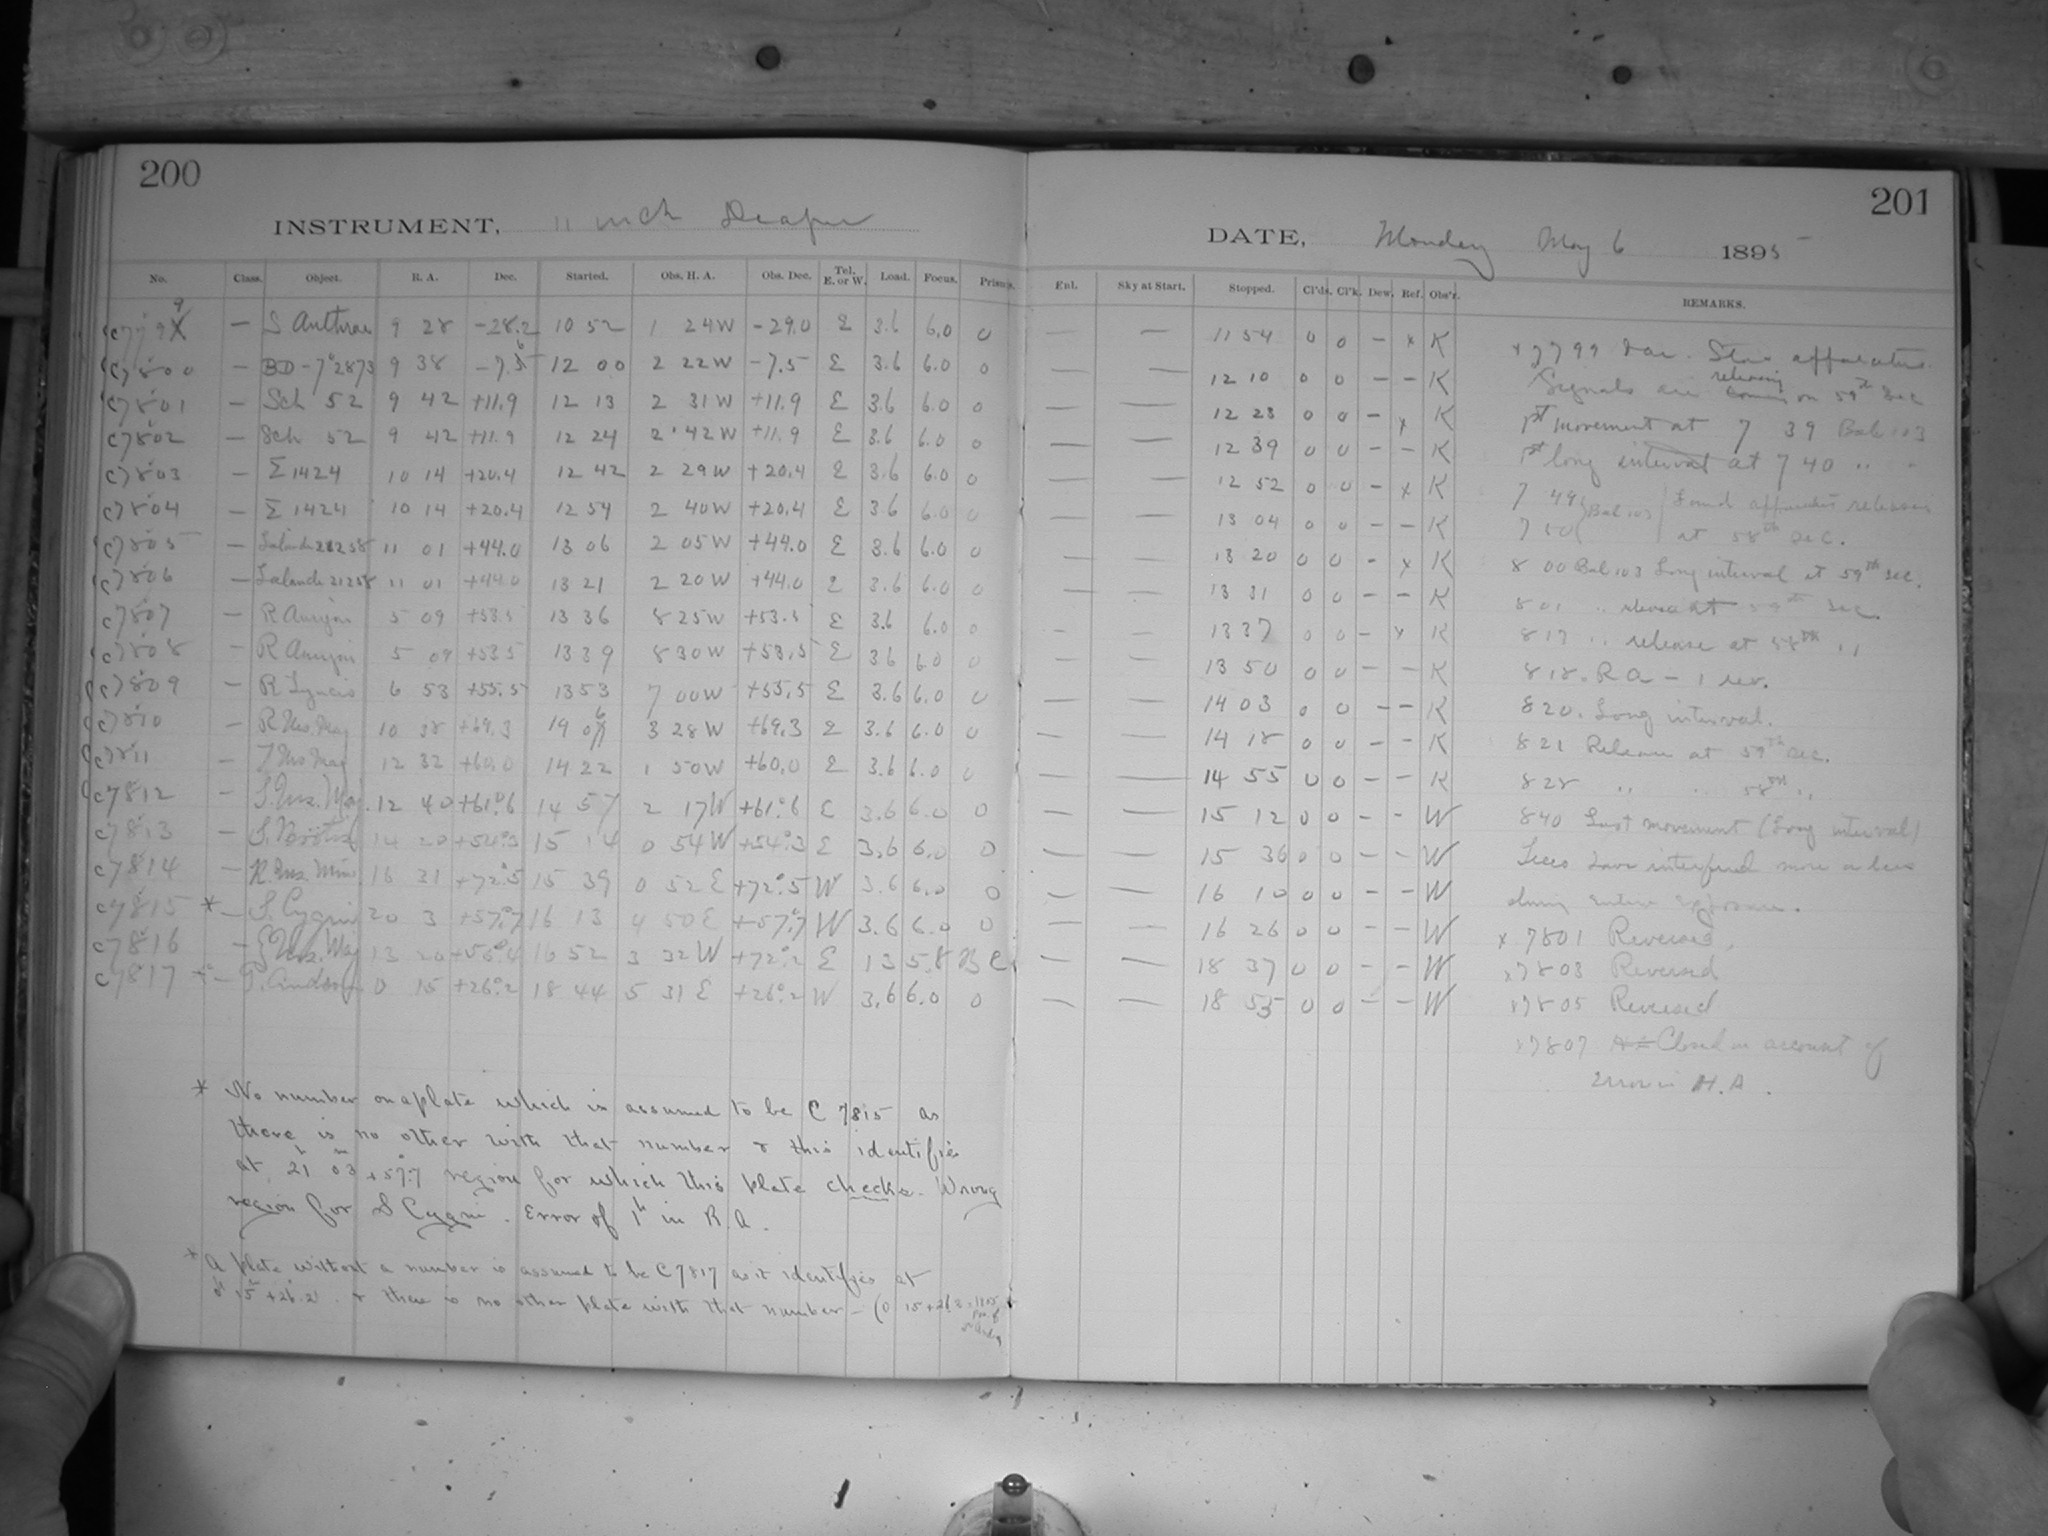 200
INSTRUMENT, 11 inch Draper
No. Class. Object. R. A. Dec. Started. Obs. H. A. Obs. Dec. Tel. E. or W. Load. Focus. Prisms.
— S Antliae 9 28 -28.2 10 52 1 24W -29.0 E 3.6 6.0 0
C7800 — BD -7°2873 9 38 12 00 2 22W -7.5 E 3.6 6.0 0
C7801 — Sch 52 9 42 +11.9 12 13 2 31W +11.9 E 3.6 6.0 0
C7802 — Sch 52 9 42 +11.9 12 24 2 42W +11.9 E 3.6 6.0 0
C7803 — Σ 1424 10 14 +20.4 12 42 2 29W +20.4 E 3.6 6.0 0
C7804 — Σ 1424 10 14 +20.4 12 54 2 40W +20.4 E 3.6 6.0 0
C7805 — Lalande 21258 11 01 +44.0 13 06 2 05W +44.0 E 3.6 6.0 0
C7806 — Lalande 21258 11 01 +44.0 13 21 2 20W +44.0 E 3.6 6.0 0
C7807 — R Aurigae 5 09 +53.5 13 36 8 25W +53.5 E 3.6 6.0 0
C7808 — R Aurigae 5 09 +53.5 13 39 8 30W +53.5 E 3.6 6.0 0
C7809 — R Lyncis 6 53 +55.5 13 53 7 00W +55.5 E 3.6 6.0 0
C7810 — R Urs. Maj 10 38 +69.3 3 28W +69.3 E 3.6 6.0 0
C7811 — T Urs Maj 12 32 +60.0 14 22 1 50W +60.0 E 3.6 6.0 0
C7812 — S. Urs. Maj. 12 40 +61°.6 14 57 2 17W +61°.6 E 3.6 6.0 0
C7813 — S. Boötis 14 20 +54°.3 15 14 0 54W +54°.3 E 3.6 6.0 0
C7814 — R. Urs. Min. 16 31 +72°.5 15 39 0 52E +72°.5 W 3.6 6.0 0
C7815 * — S. Cygni 20 3 +57°.7 16 13 4 50E +57°.7 W 3.6 6.0 0
C7816 — ζ Urs. Maj 13 20 16 52 3 32W +72°.2 E 13 5.8 B C
C7817 * — 0 15 +26°.2 18 44 5 31E +26°.2 W 3.6 6.0 0
* No number on a plate which is assumed to be C 7815 as
there is no other with that number & this identifies
at 21h 03m +57°.7 region for which this plate checks. Wrong
region for S Cygni. Error of 1h in R.A.
* A plate without a number is assumed to be C7817 as it identifies at
0h 15m +26°.2 & there is no other plate with that number —
201
DATE, Monday May 6 1895
Enl. Sky at Start. Stopped. Cl'ds. Cl'k. Dew. Ref. Obs'r. REMARKS.
— — 11 54 0 0 — x K
— — 12 10 0 0 — — K
— — 12 23 0 0 — x K
— — 12 39 0 0 — — K
— — 12 52 0 0 — x K
— — 13 04 0 0 — — K
— — 13 20 0 0 — x K
— — 13 31 0 0 — — K
— — 13 37 0 0 — x K
— — 13 50 0 0 — — K
— — 14 03 0 0 — — K
— — 14 18 0 0 — — K
— — 14 55 0 0 — — K
— — 15 12 0 0 — — W
— — 15 36 0 0 — — W
— — 16 10 0 0 — — W
— — 16 26 0 0 — — W
— — 18 37 0 0 — — W
— — 18 53 0 0 — — W
x 7799 apparatus
Signals are releasing on 59th sec
1st movement at 7 39 Bal 103
1st long interval at 7 40 " "
7 49 7 50 Bal 103 Found apparatus releases
at 58th sec.
8 00 Bal 103 Long interval at 59th sec.
801 " release at 59th sec.
817 " release at 58th "
818. R A – 1 rev.
820. Long interval.
821 Release at 59th sec.
828 " " 58th "
840 Last movement (Long interval)
Trees have interfered more or less
during entire exposure.
x 7801 Reversed.
x 7803 Reversed
x 7805 Reversed
x 7807 Closed on account of
error in H.A.